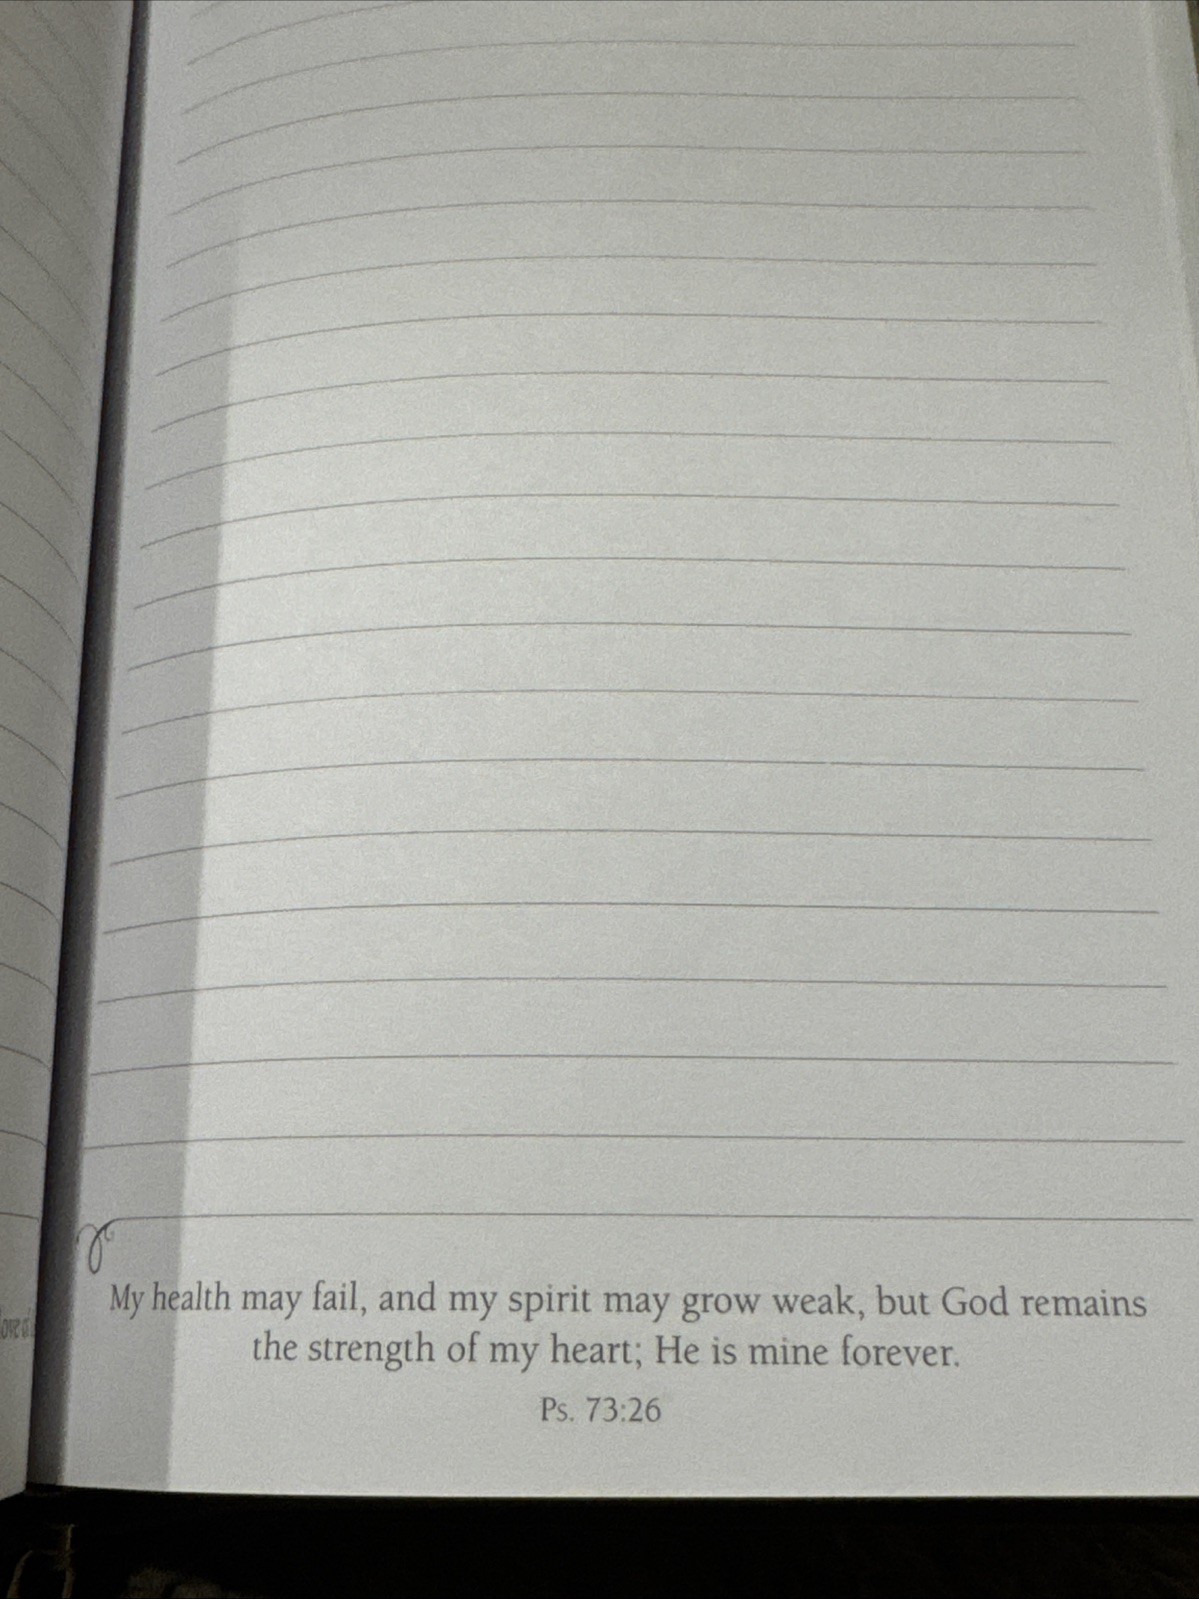 My health may fail, and my spirit may grow weak, but God remains
the strength of my heart; He is mine forever.
Ps. 73:26